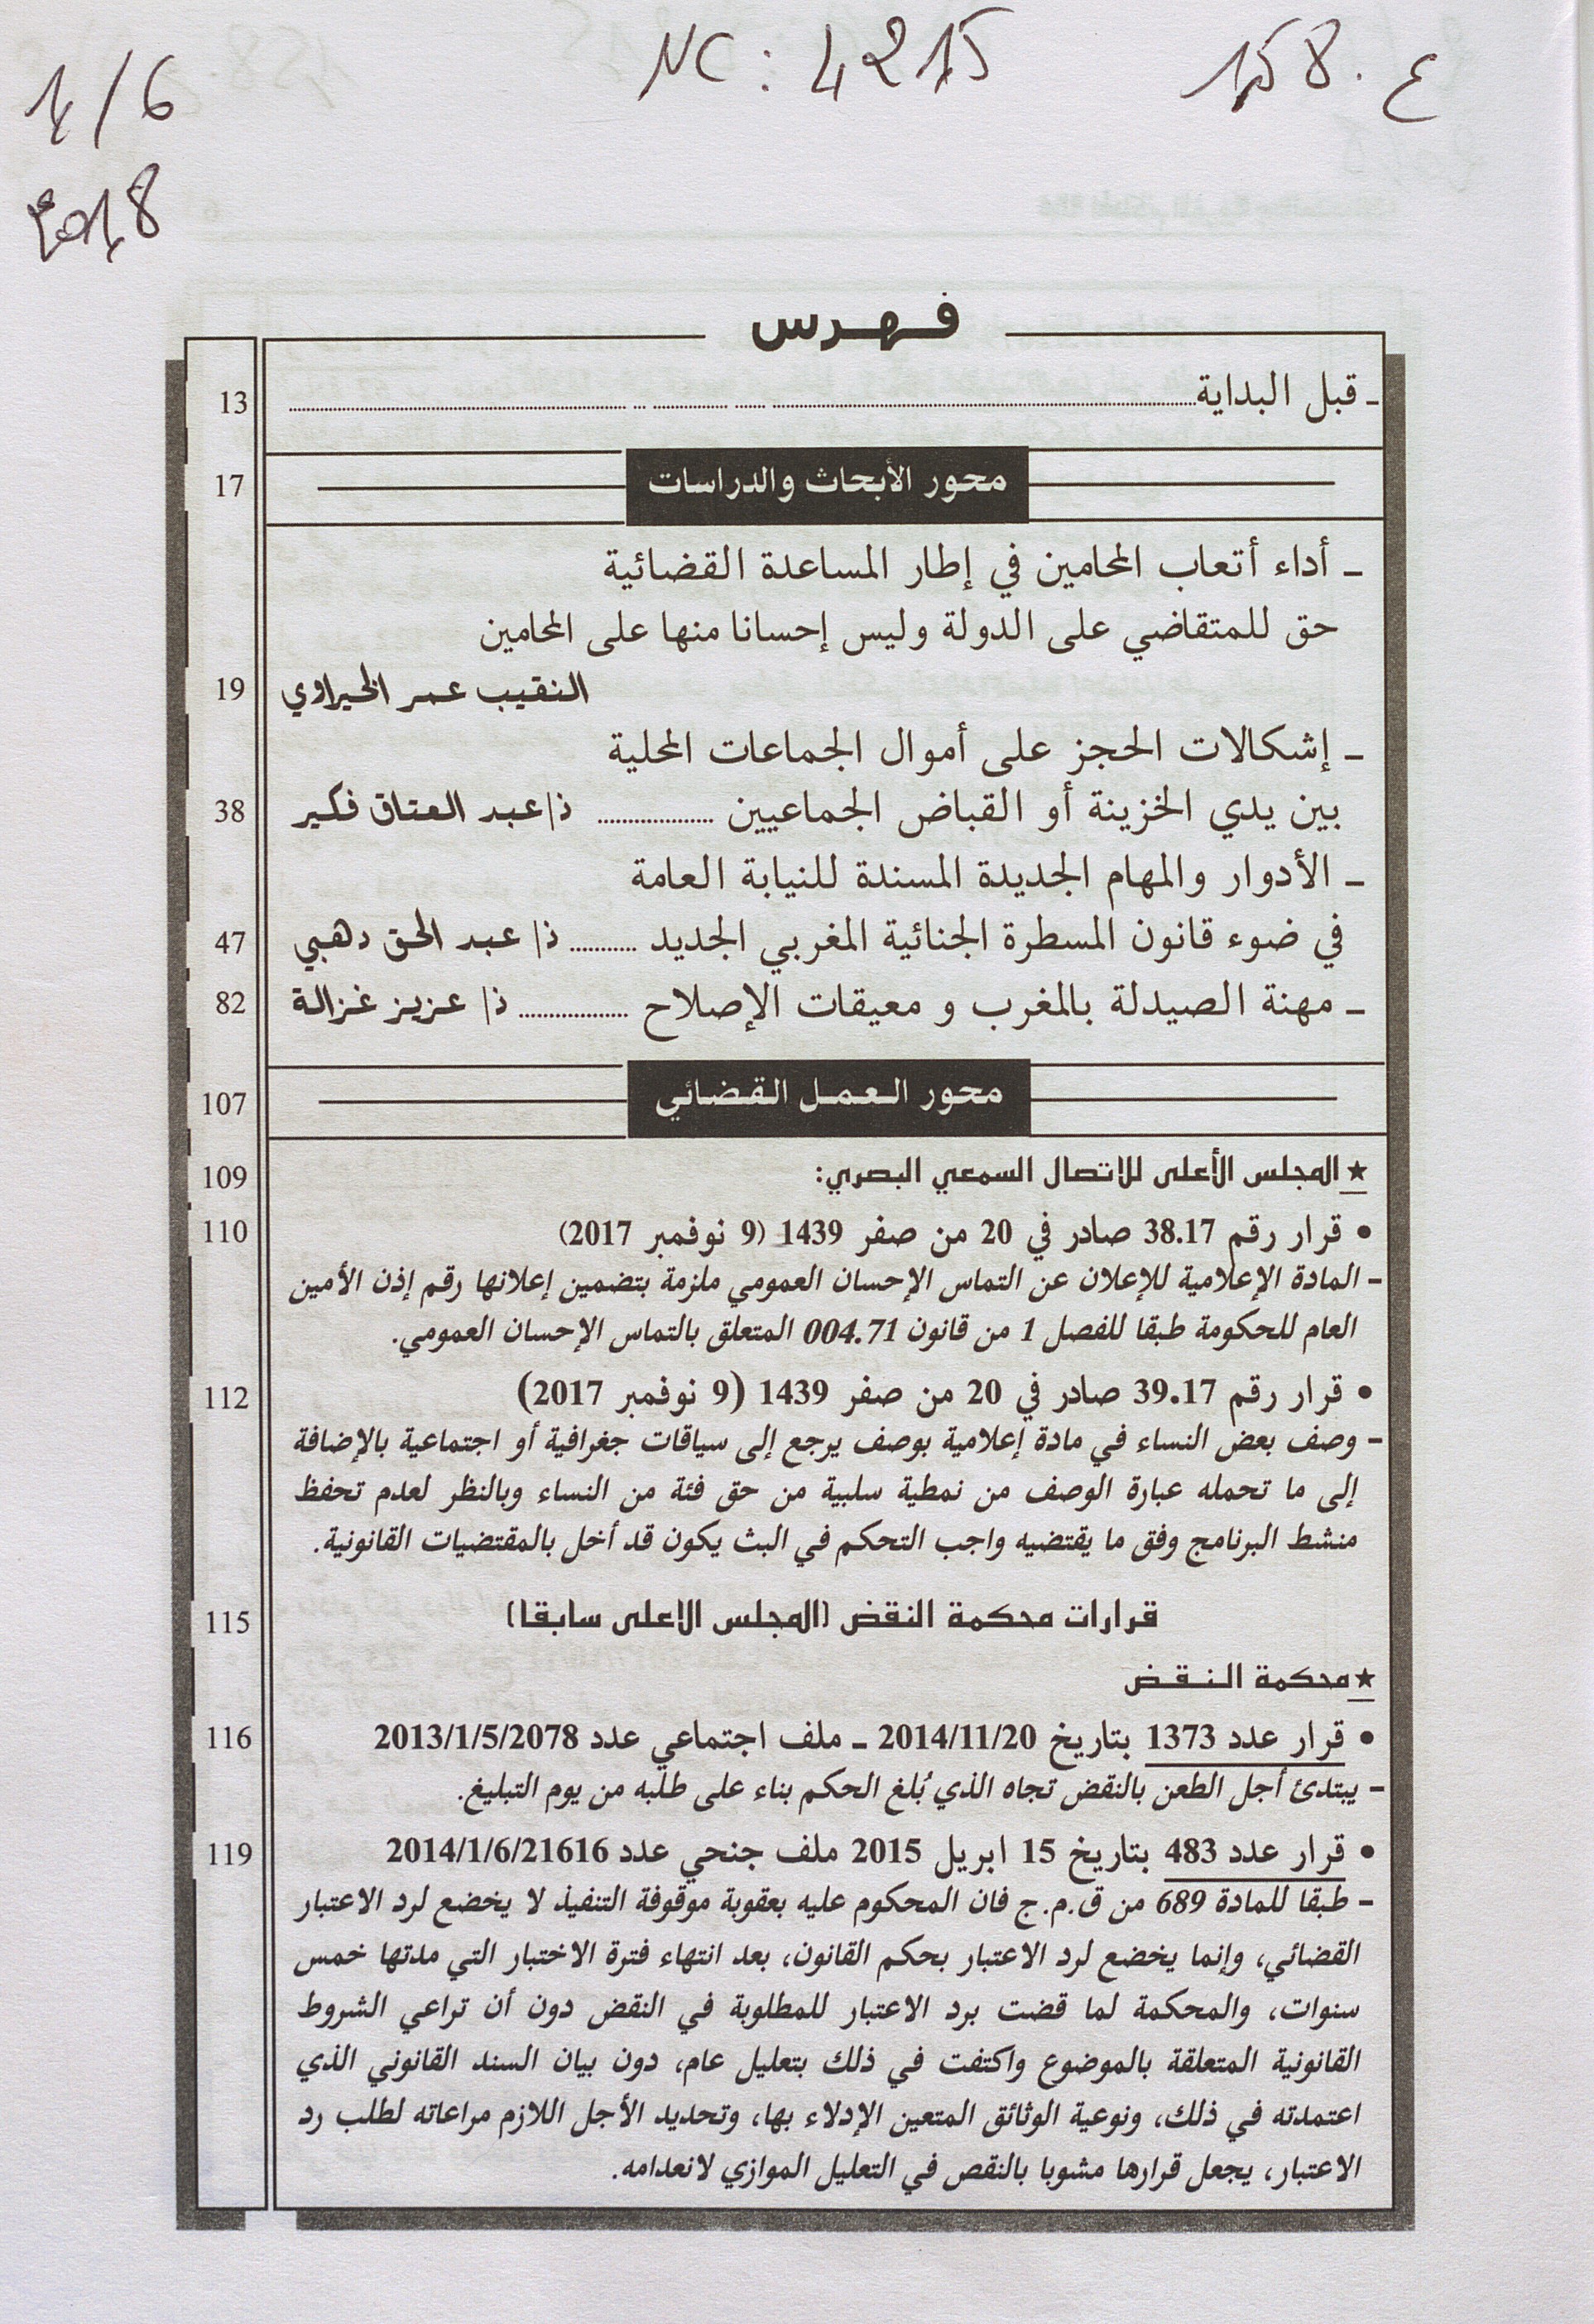 NC: 4215
158.ع
1/6
2018
فهرس
ـ قبل البداية 13
محور الأبحاث والدراسات 17
ـ أداء أتعاب المحامين في إطار المساعدة القضائية
حق للمتقاضي على الدولة وليس إحسانا منها على المحامين
النقيب عمر الخيراوي 19
ـ إشكالات الحجز على أموال الجماعات المحلية
بين يدي الخزينة أو القباض الجماعيين ........ ذ/عبد العتاق فكير 38
ـ الأدوار والمهام الجديدة المسندة للنيابة العامة
في ضوء قانون المسطرة الجنائية المغربي الجديد ........ ذ/ عبد الحق دهبي 47
ـ مهنة الصيدلة بالمغرب و معيقات الإصلاح ........ ذ/ عزيز غزالة 82
محور العمل القضائي 107
★ المجلس الأعلى للاتصال السمعي البصري: 109
• قرار رقم 38.17 صادر في 20 من صفر 1439 (9 نوفمبر 2017) 110
- المادة الإعلامية للإعلان عن التماس الإحسان العمومي ملزمة بتضمين إعلانها رقم إذن الأمين
العام للحكومة طبقا للفصل 1 من قانون 004.71 المتعلق بالتماس الإحسان العمومي.
• قرار رقم 39.17 صادر في 20 من صفر 1439 (9 نوفمبر 2017) 112
- وصف بعض النساء في مادة إعلامية بوصف يرجع إلى سياقات جغرافية أو اجتماعية بالإضافة
إلى ما تحمله عبارة الوصف من نمطية سلبية من حق فئة من النساء وبالنظر لعدم تحفظ
منشط البرنامج وفق ما يقتضيه واجب التحكم في البث يكون قد أخل بالمقتضيات القانونية.
قرارات محكمة النقض (المجلس الاعلى سابقا) 115
★ محكمة النقض
• قرار عدد 1373 بتاريخ 2014/11/20 ـ ملف اجتماعي عدد 2013/1/5/2078 116
- يبتدئ أجل الطعن بالنقض تجاه الذي بُلغ الحكم بناء على طلبه من يوم التبليغ.
• قرار عدد 483 بتاريخ 15 ابريل 2015 ملف جنحي عدد 2014/1/6/21616 119
- طبقا للمادة 689 من ق.م.ج فان المحكوم عليه بعقوبة موقوفة التنفيذ لا يخضع لرد الاعتبار
القضائي، وإنما يخضع لرد الاعتبار بحكم القانون، بعد انتهاء فترة الاختبار التي مدتها خمس
سنوات، والمحكمة لما قضت برد الاعتبار للمطلوبة في النقض دون أن تراعي الشروط
القانونية المتعلقة بالموضوع واكتفت في ذلك بتعليل عام، دون بيان السند القانوني الذي
اعتمدته في ذلك، ونوعية الوثائق المتعين الإدلاء بها، وتحديد الأجل اللازم مراعاته لطلب رد
الاعتبار، يجعل قرارها مشوبا بالنقص في التعليل الموازي لانعدامه.